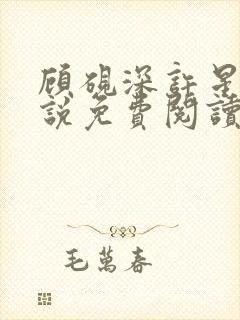 顾砚深許星
說免費閱讀
毛萬春